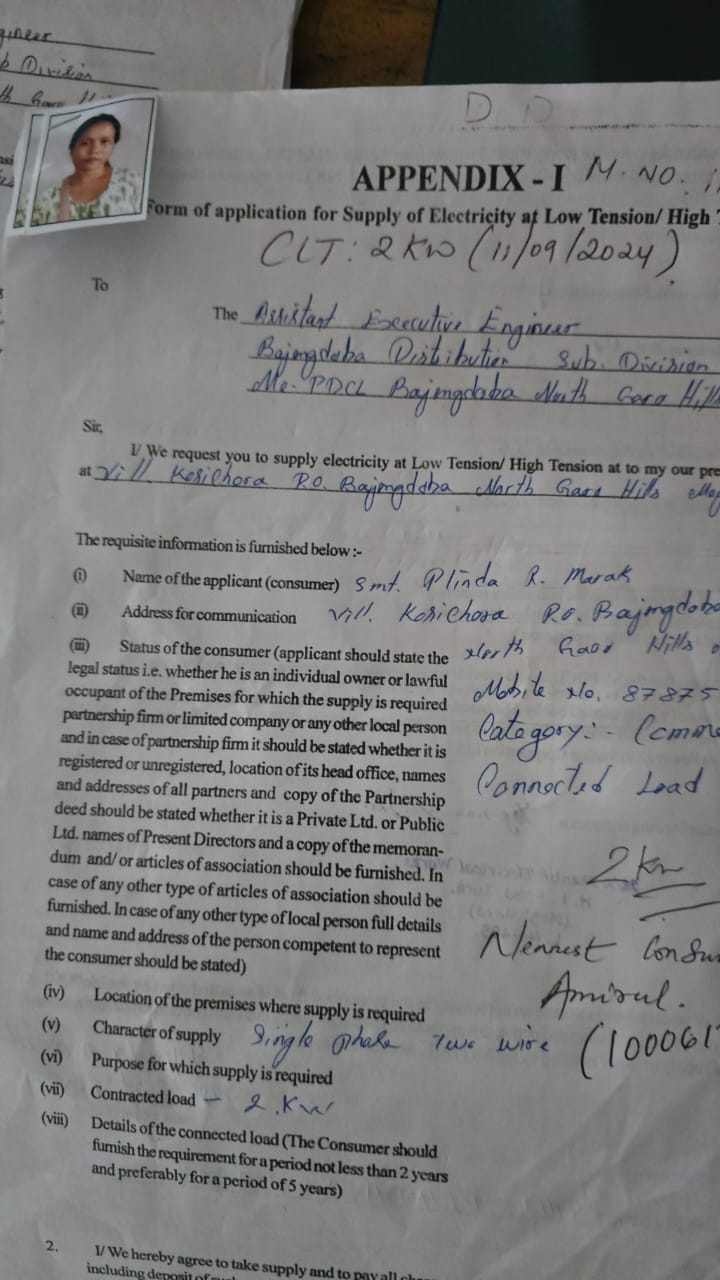 gineer
b Division
th Garo
D D
APPENDIX - I M. NO.
Form of application for Supply of Electricity at Low Tension/ High
CLT: 2 KW (11/09/2024)
To
The Assistant Executive Engineer
Bajengdoba Distribution Sub. Division
Me. PDCL Bajengdoba North Garo Hills
Sir,
I/ We request you to supply electricity at Low Tension/ High Tension at to my our pre
at Vill. Kosichora P.O. Bajengdoba North Garo Hills
The requisite information is furnished below :-
(i) Name of the applicant (consumer) Smt. Plinda R. Marak
(ii) Address for communication Vill. Kosichora P.O. Bajengdoba
(iii) Status of the consumer (applicant should state the North Garo Hills
legal status i.e. whether he is an individual owner or lawful
occupant of the Premises for which the supply is required Mobile No. 87875
partnership firm or limited company or any other local person Category:- Comme
and in case of partnership firm it should be stated whether it is
registered or unregistered, location of its head office, names Connected Load
and addresses of all partners and copy of the Partnership
deed should be stated whether it is a Private Ltd. or Public
Ltd. names of Present Directors and a copy of the memoran- 2 KW
dum and/ or articles of association should be furnished. In
case of any other type of articles of association should be
furnished. In case of any other type of local person full details
and name and address of the person competent to represent Nearest Consu
the consumer should be stated)
Amirul.
(iv) Location of the premises where supply is required
(v) Character of supply Single phase Two wire (100061
(vi) Purpose for which supply is required
(vii) Contracted load - 2.KW
(viii) Details of the connected load (The Consumer should
furnish the requirement for a period not less than 2 years
and preferably for a period of 5 years)
2. I/ We hereby agree to take supply and to pay all
including deposit of